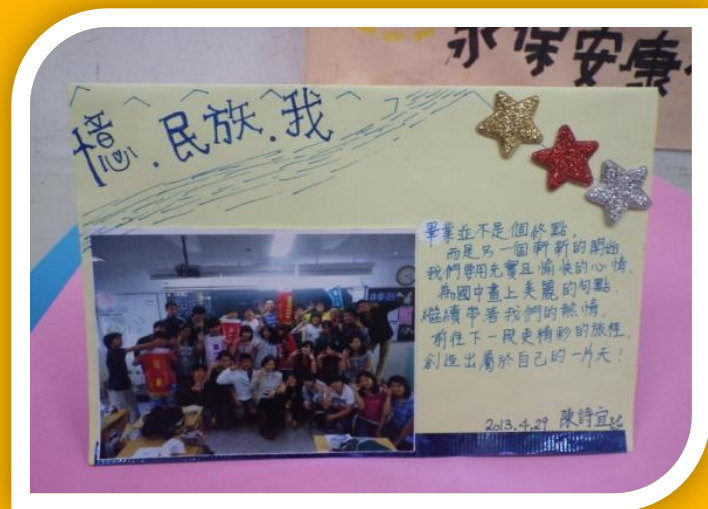 永保安康
憶.民族.我
畢業並不是個終點,
而是另一個軒新的開始,
我們要用充實且愉快的心情,
為國中畫上美麗的句點.
繼續帶著我們的熱情,
前往下一段更精彩的旅程,
創造出屬於自己的一片天!
2013.4.29 陳詩宜記